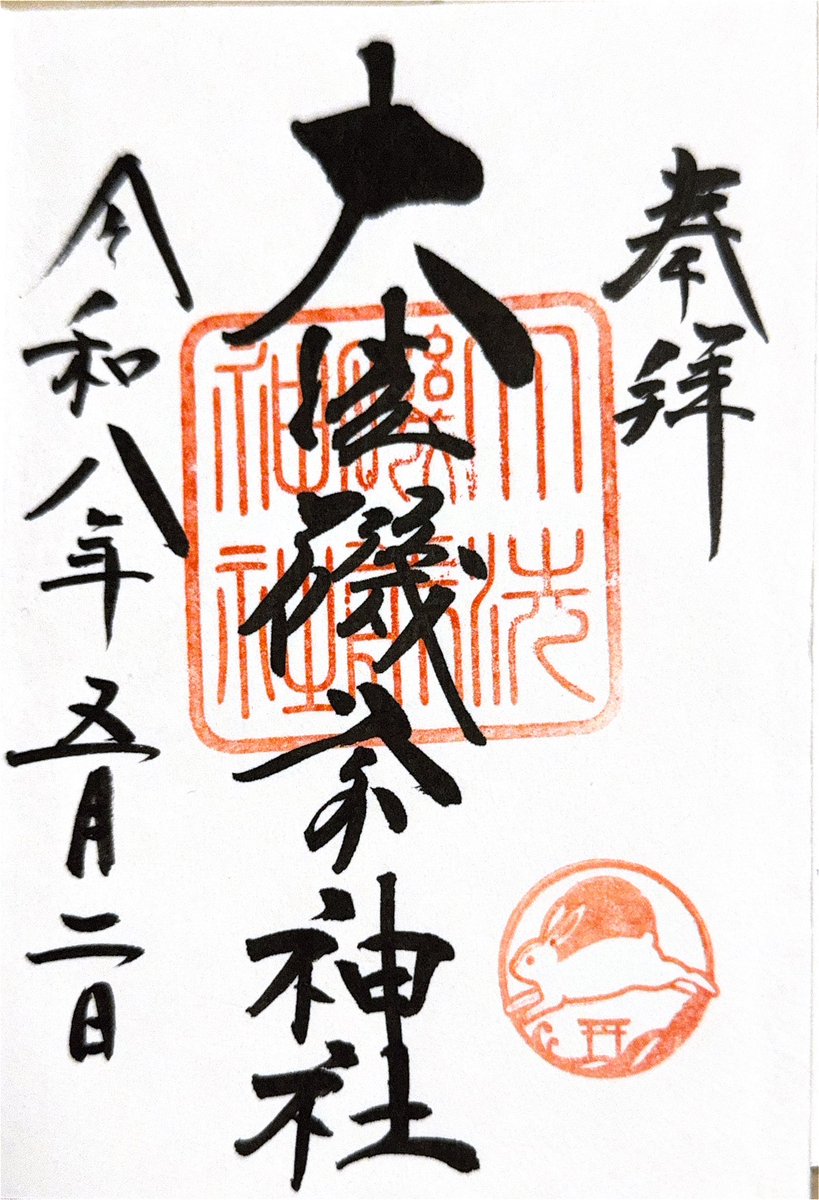 奉拝
大洗磯前神社
令和八年五月二日
大洗
神社